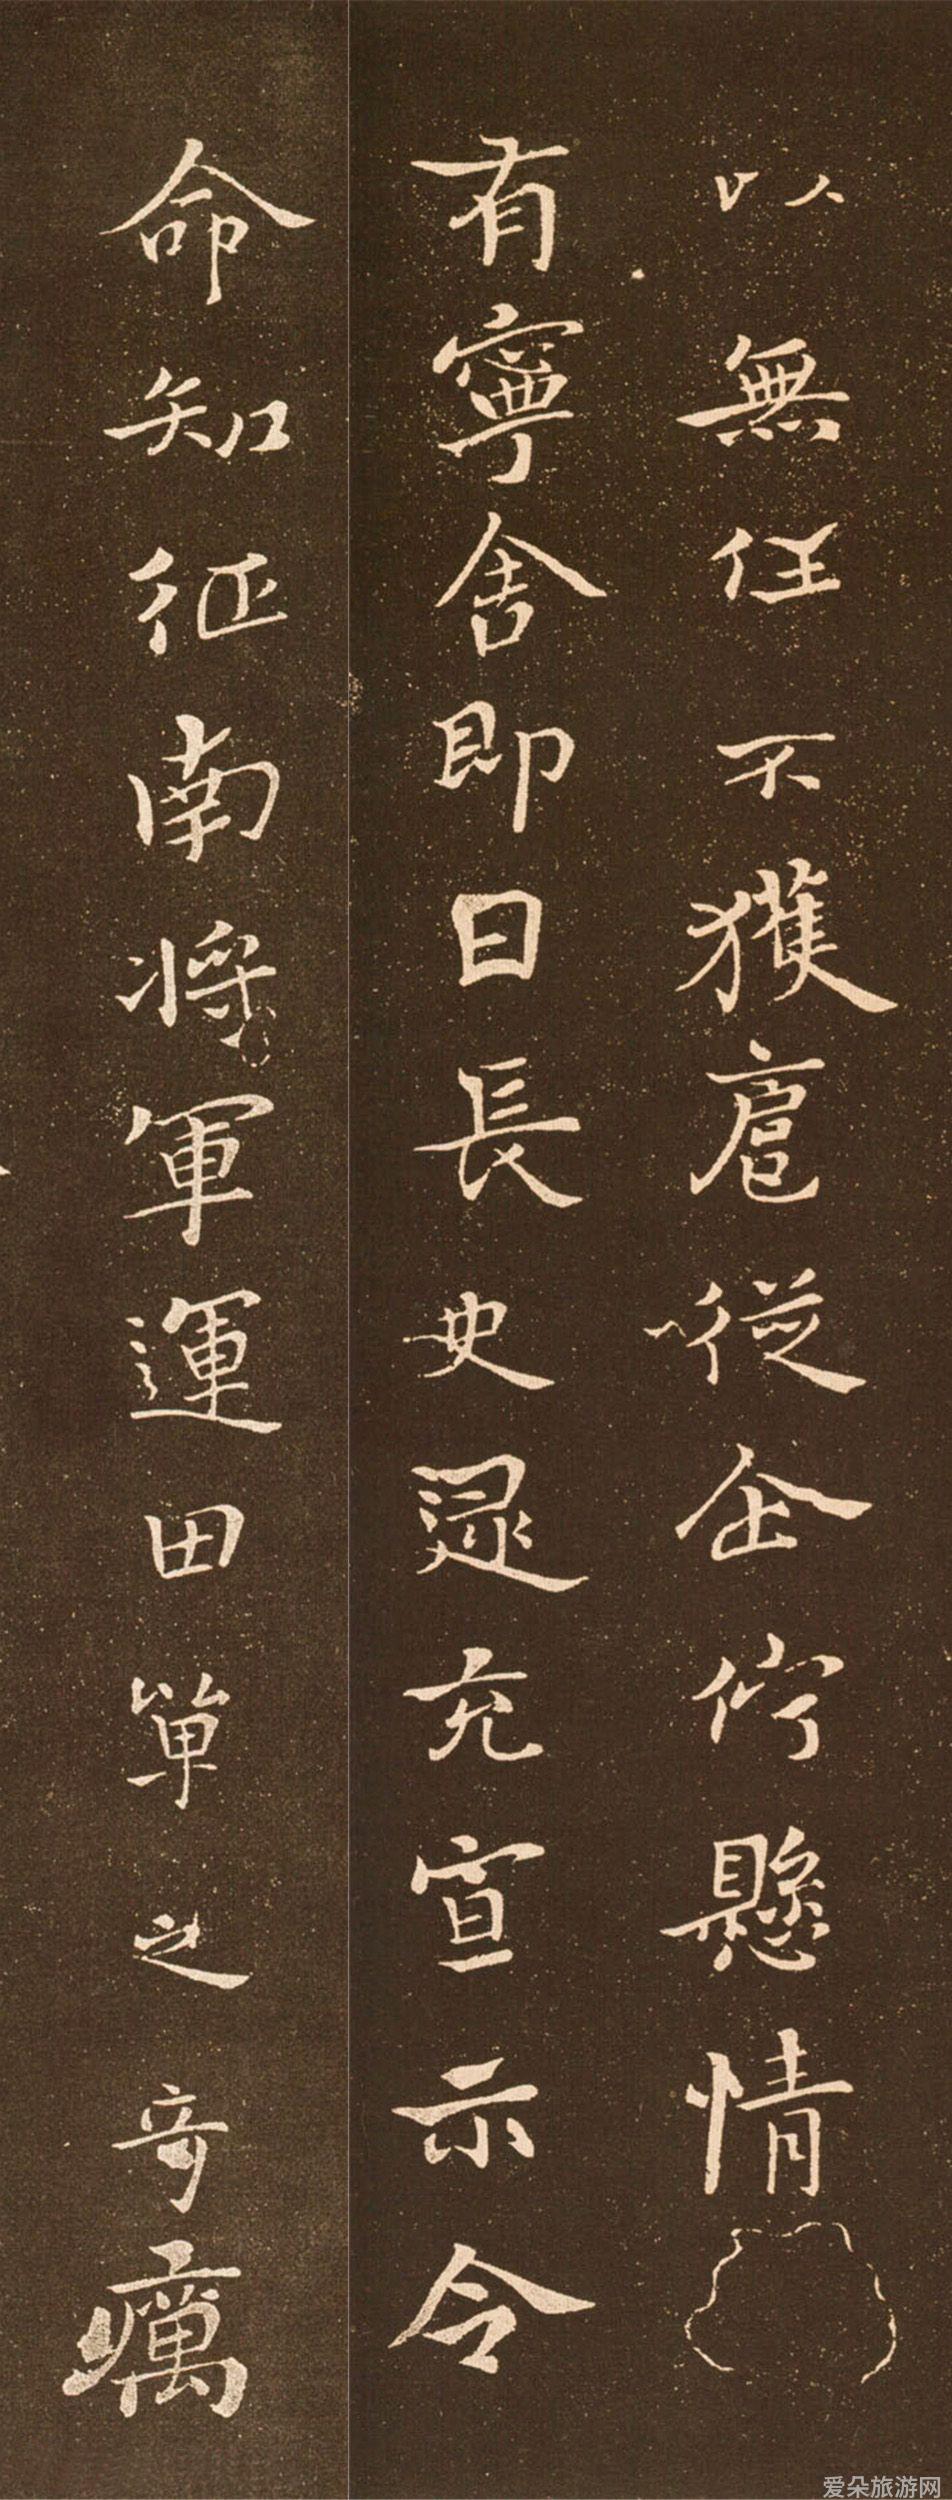 以無任不獲扈從企佇懸情
有寧舍即日長史逯充宣示令
命知征南將軍運田單之奇厲
爱朵旅游网